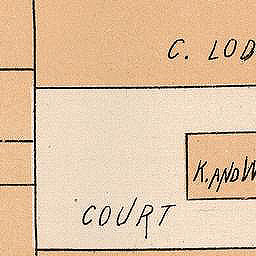 C. LOD
K. AND W
COURT